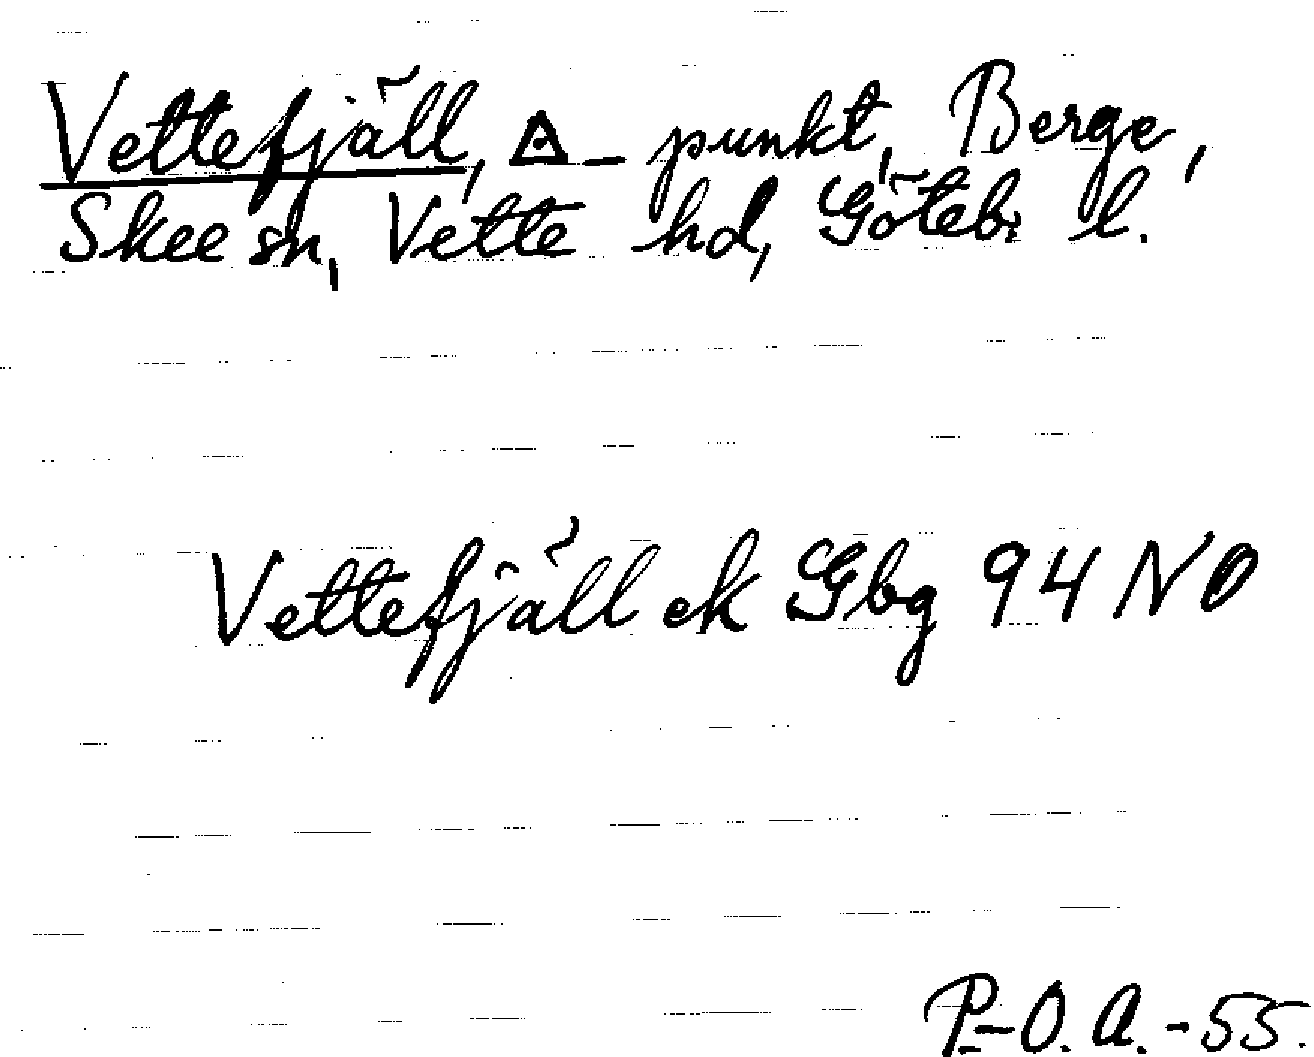 Vettefjäll, △ - punkt, Berge,
Skee sn, Vette hd, Göteb. l.
Vettefjäll ek Gbg 94 NO
P.-O. A. -55.